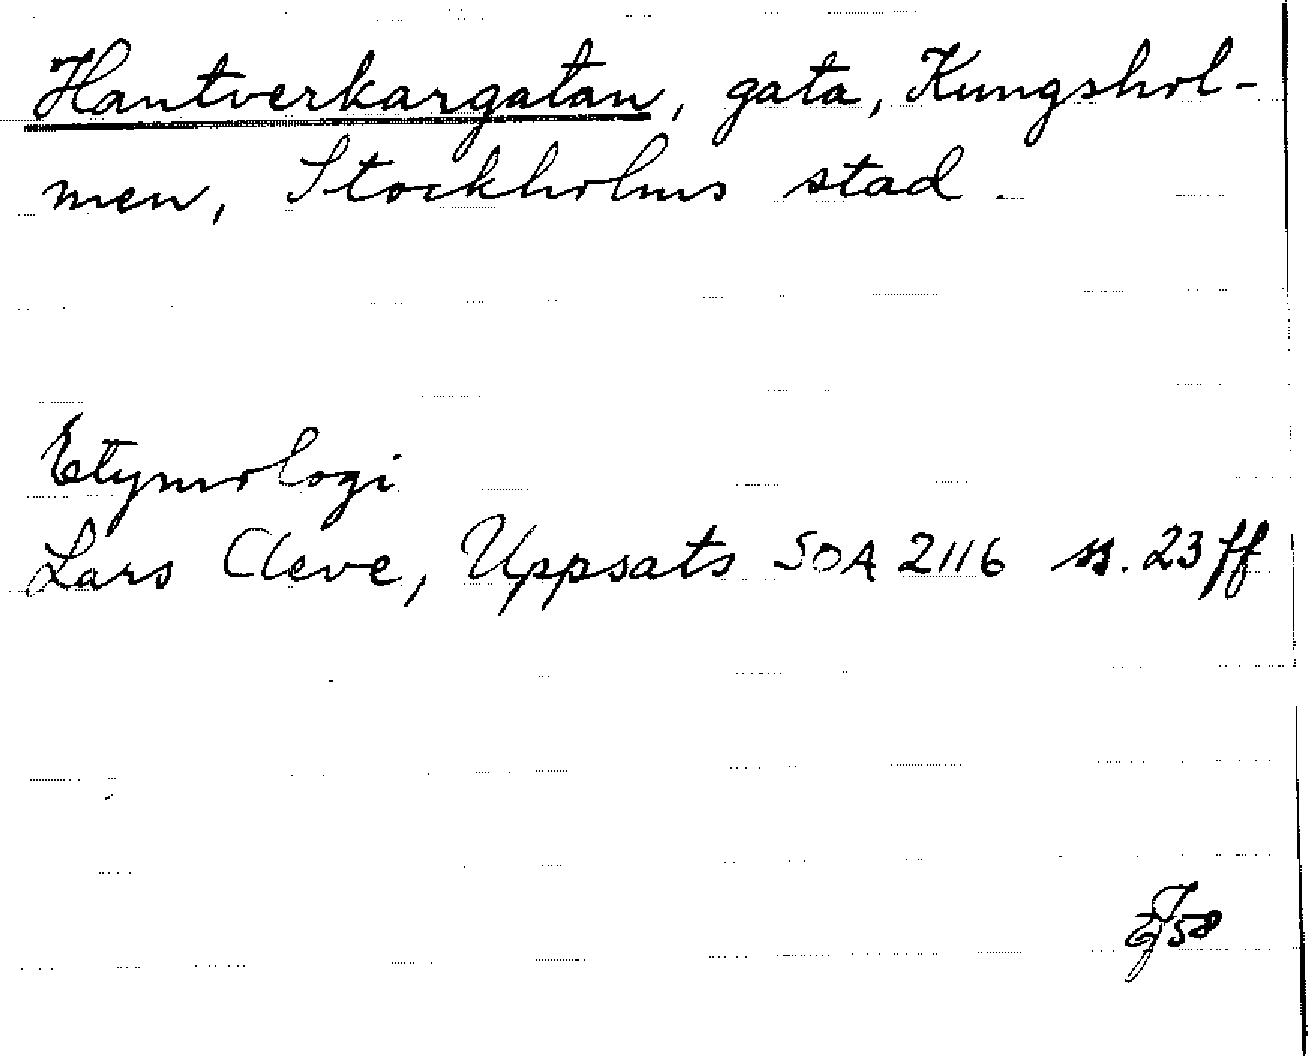 Hantverkargatan, gata, Kungshol-
men, Stockholms stad
Etymologi
Lars Cleve, Uppsats SOA 2116 ss. 23 ff